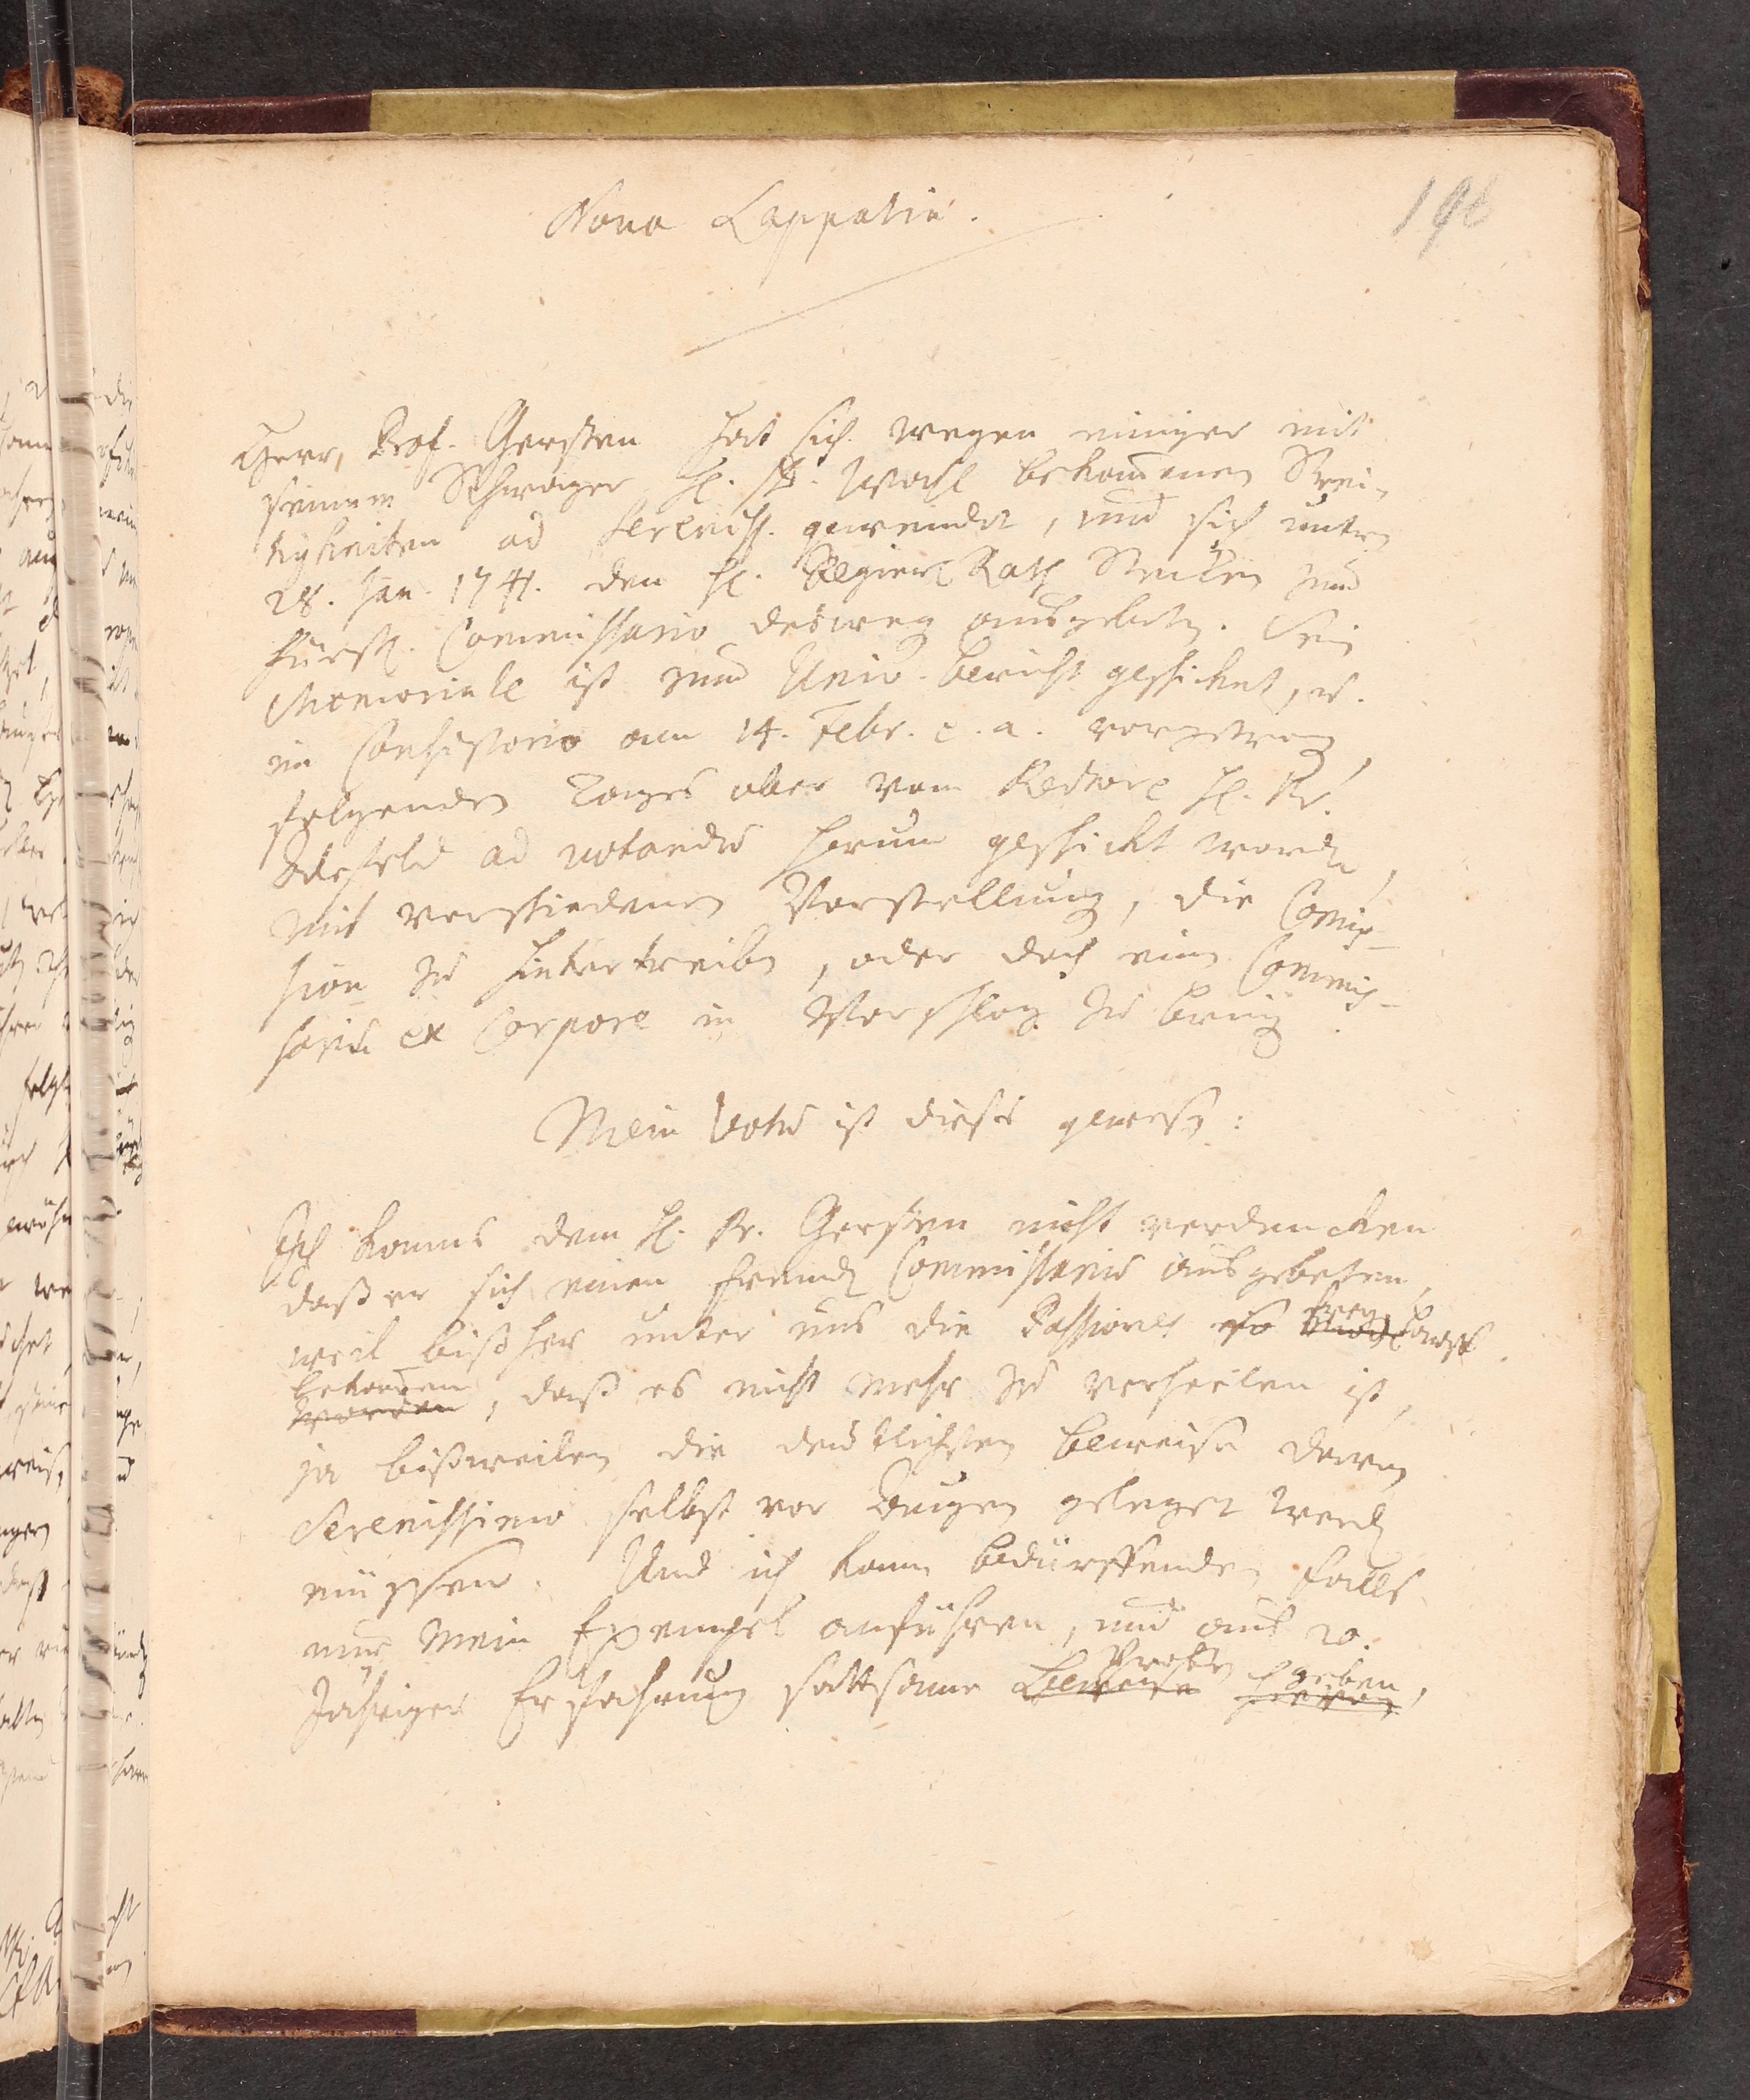 Nova Lappalia.
196
Herr, Prof. Gersten hat sich wegen einiger mit
seinem Schwager H. D. Wahl bekommenen Strei-
tigkeiten ad Sereniss. gewendet, und sich unterm
28. Jan. 1741. den H. Regier. Rath zum
Fürstl. Commissario deswegen ausgebeten. Sein
Memoriale ist zum Univ. bericht geschicket, u.
in Consistorio am 14. Febr. e. a. vorgetragen,
folgenden Tages aber vom Rectore H. Dr.
ad votandum herum geschickt worden,
mit verschiedenen Vorstellung, die Comis-
sion zu hintertreiben, oder doch einen Commis-
sarium ex Corpore in Vorschlag zu bringen
Mein Votum ist dieses gewesen:
Ich kanns dem H. Pr. Gersten nicht verdencken
daß er sich einen frembden Commissarium ausgebeten,
weil bißher unter uns die Passiones so
bekommen
worden, daß es nicht mehr zu verheelen ist,
ja bißweilen die deutlichsten beweise deren
Serenissimo selbst vor Augen geleget werden
müssen. Und ich kann bedürffenden falls
nur mein Exempel anführen, und aus 20.
Jähriger Erfahrung sattsame Proben geben,
Beweise hievon